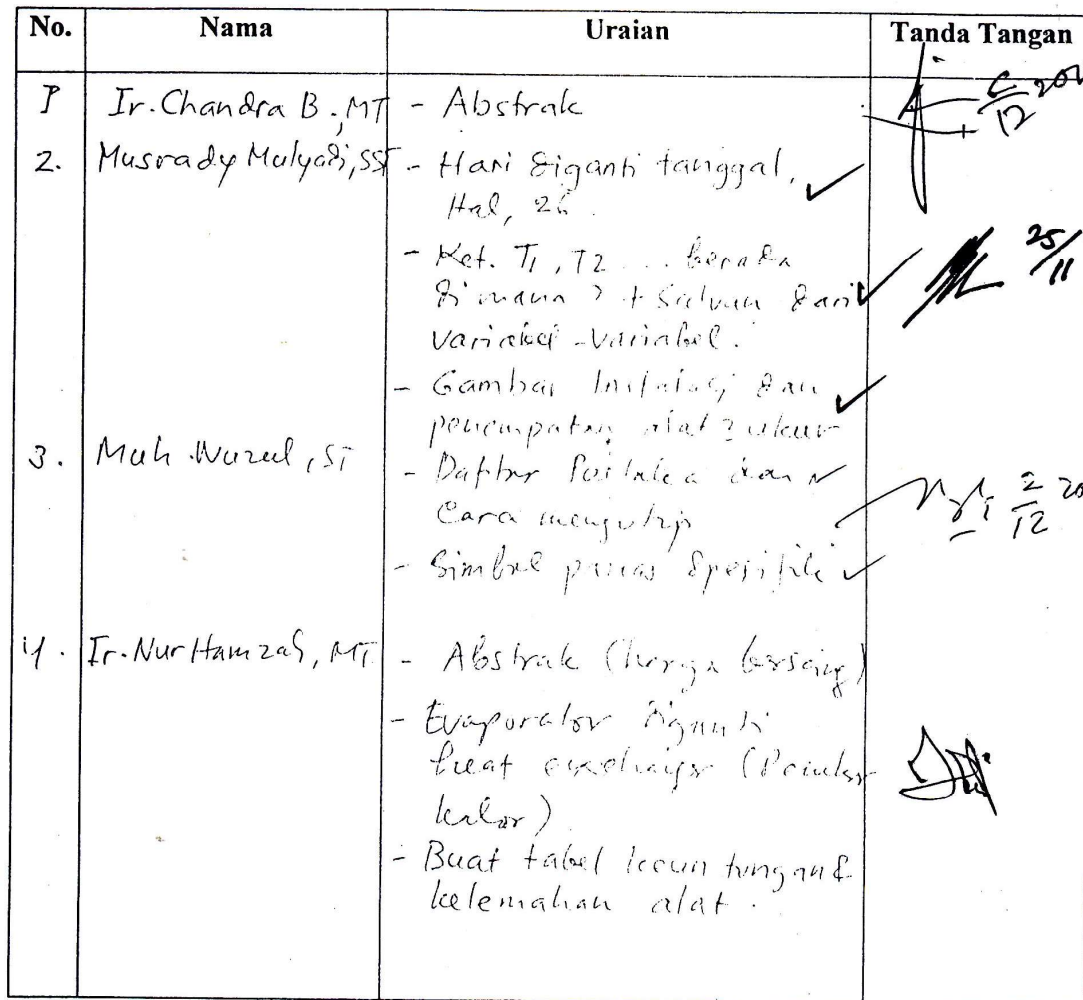 No. Nama Uraian Tanda Tangan
1 Ir. Chandra B., MT - Abstrak
12
2. Musrady Mulyadi, SST - Hari diganti tanggal,
Hal, 26.
- Ket. T1, T2 ... berada 25/11
di mana? + Satuan dari
variabel-variabel.
- Gambar Instalasi dan
penempatan alat2 ukur
3. Muh. Nuzul, ST - Daftar Pustaka dan
Cara mengutip 2/12 20
- Simbol panas Spesifik
4. Ir. Nur Hamzah, MT - Abstrak (harga bersaing)
- Evaporator diganti
heat exchanger (Penukar
kalor)
- Buat tabel keuntungan &
kelemahan alat.